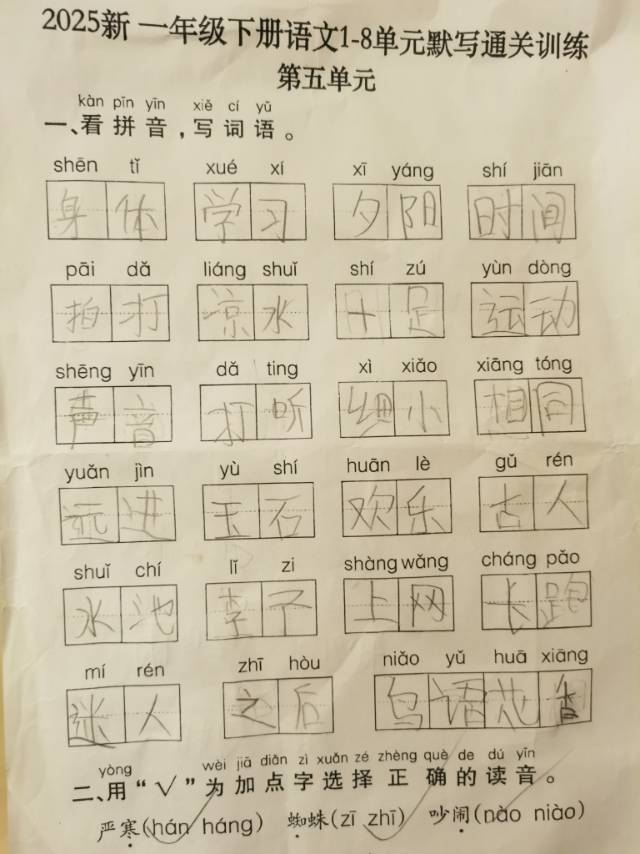 2025新 一年级下册语文1-8单元默写通关训练
第五单元
kàn pīn yīn xiě cí yǔ
一、看拼音，写词语。
shēn tǐ xué xí xī yáng shí jiān
身体 学习 夕阳 时间
pāi dǎ liáng shuǐ shí zú yùn dòng
拍打 凉水 十足 运动
shēng yīn dǎ ting xì xiǎo xiāng tóng
声音 打听 细小 相同
yuǎn jìn yù shí huān lè gǔ rén
远进 玉石 欢乐 古人
shuǐ chí lǐ zi shàng wǎng cháng pǎo
水池 李子 上网 长跑
mí rén zhī hòu niǎo yǔ huā xiāng
迷人 之后 鸟语花香
yòng wèi jiā diǎn zì xuǎn zé zhèng què de dú yīn
二、用“√”为加点字选择正确的读音。
严寒(hán háng) 蜘蛛(zī zhī) 吵闹(nào niào)